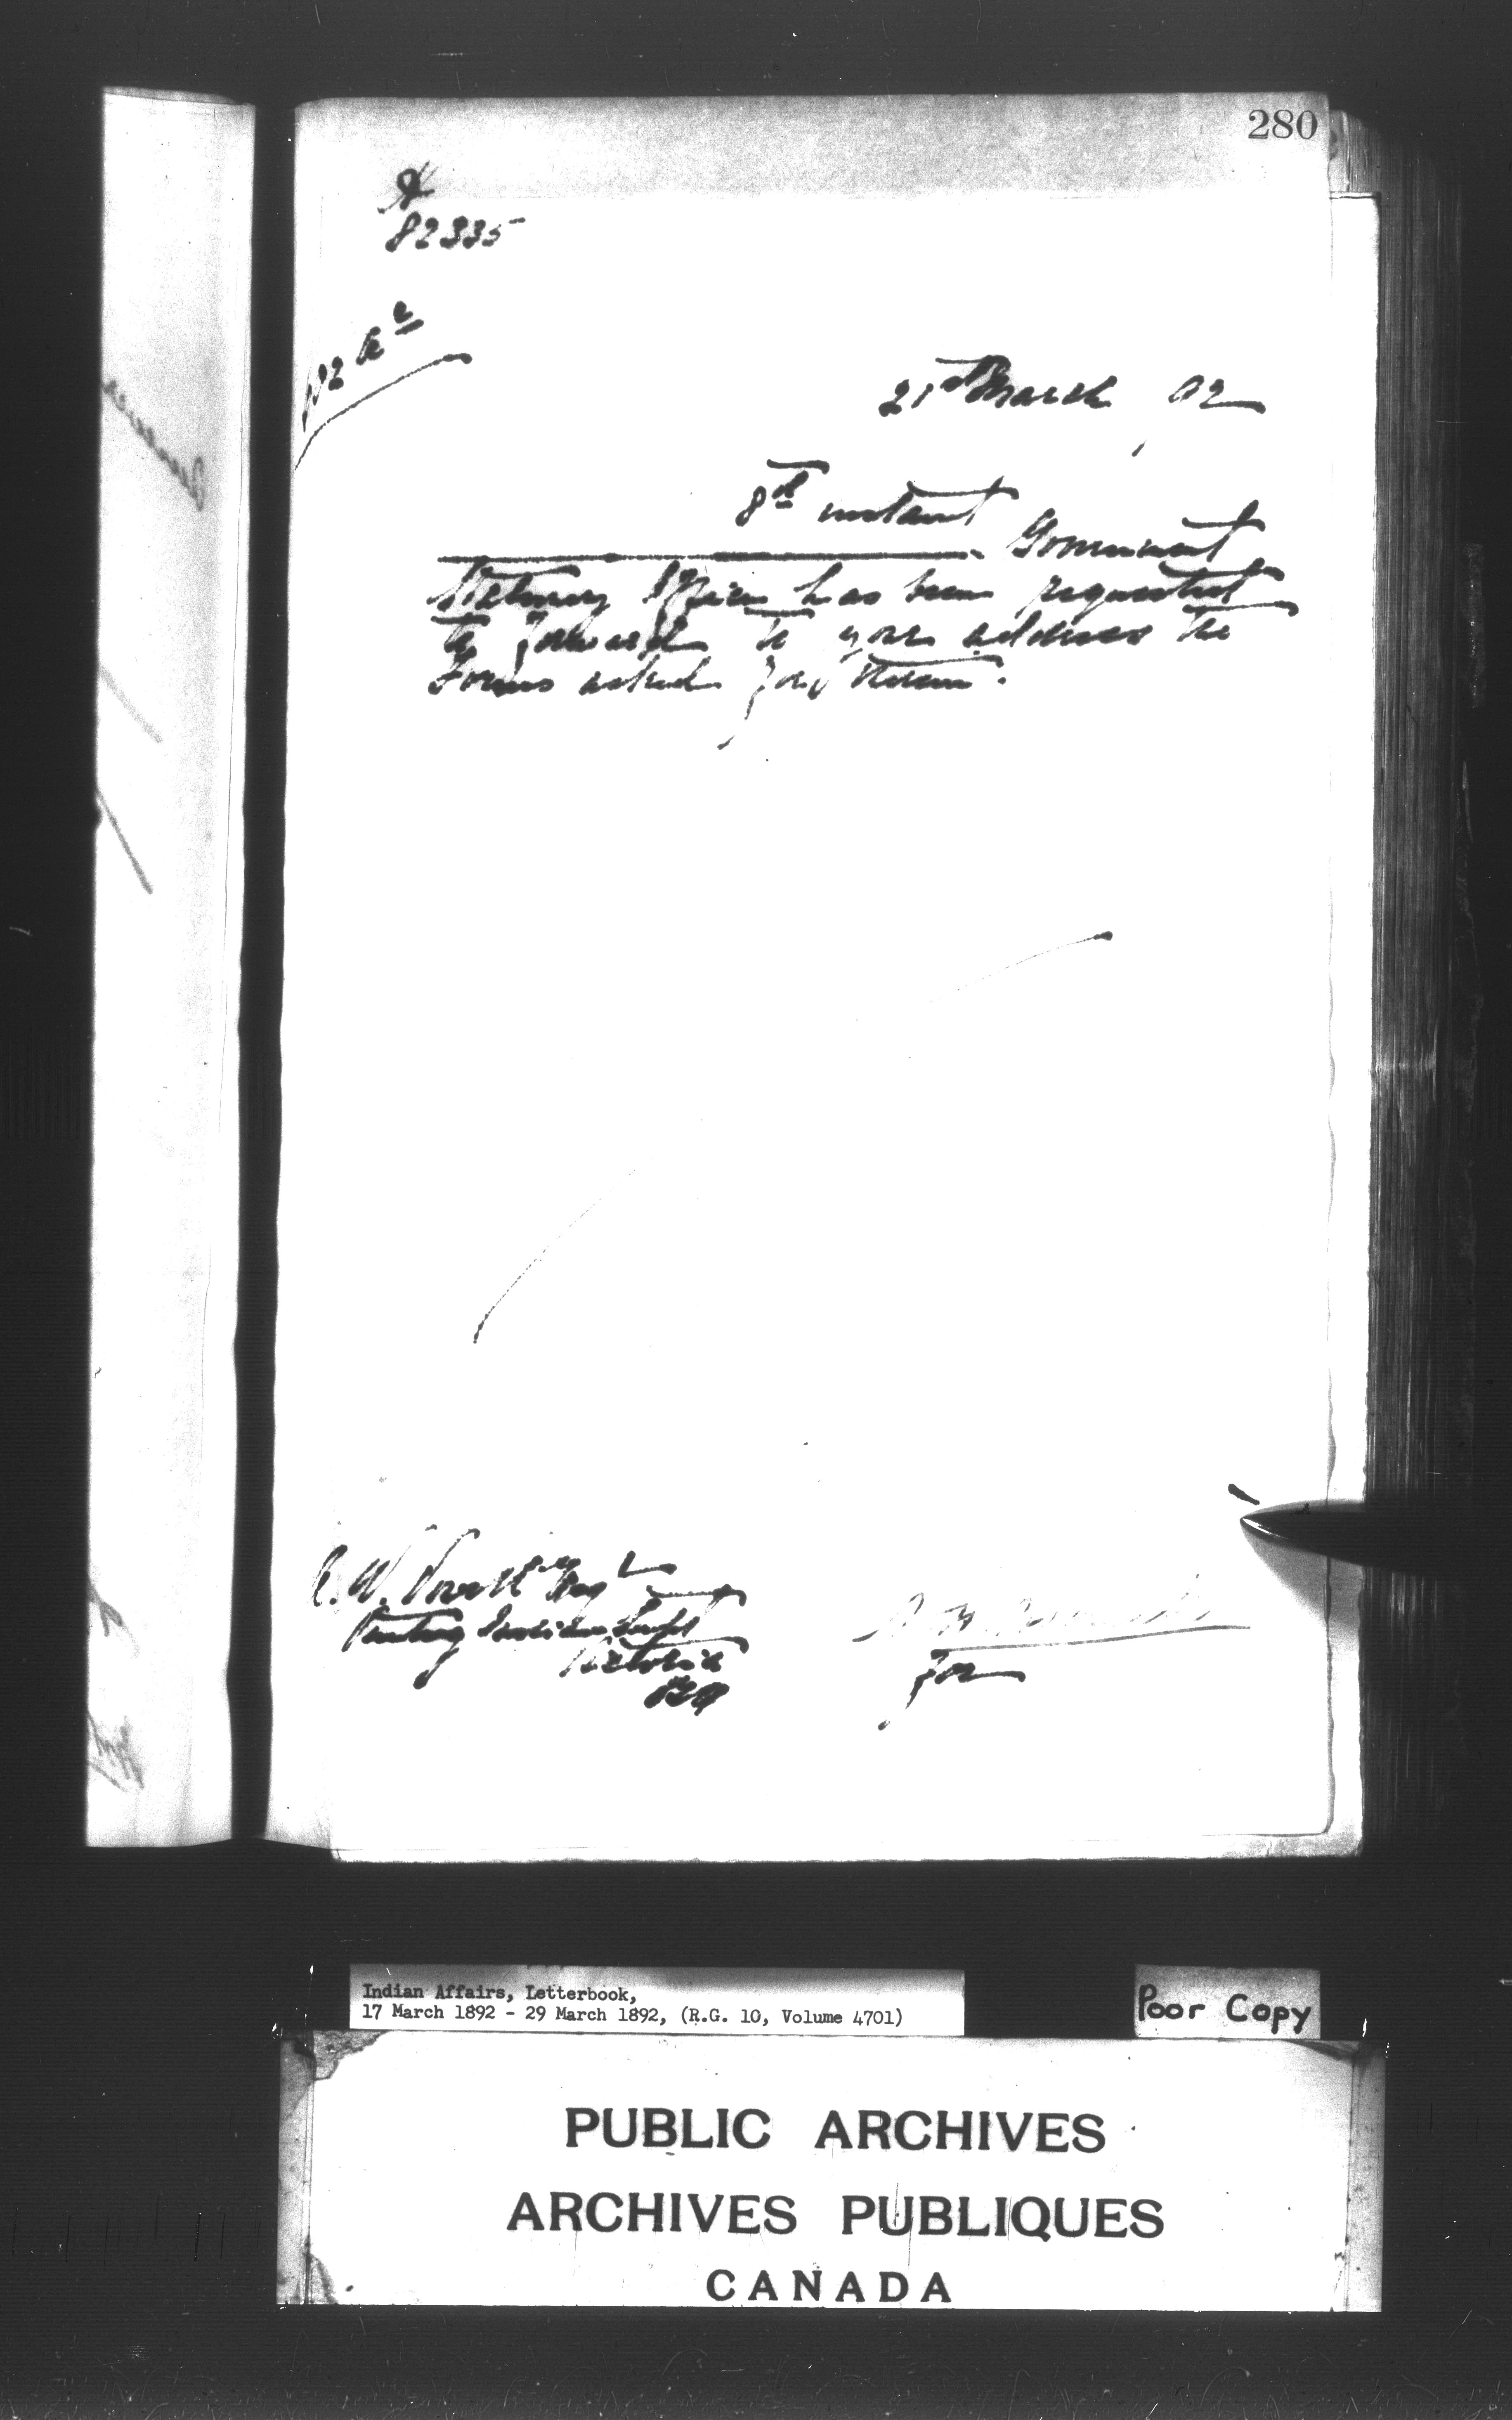 280
82335
21st March 92
8th instant
Government
Stationery Office has been requested
to forward to your address the
Forms asked for therein.
A. W. Vowell Esq
Indian Supt
Victoria
BC
for
Indian Affairs, Letterbook,
17 March 1892 - 29 March 1892, (R.G. 10, Volume 4701)
Poor Copy
PUBLIC ARCHIVES
ARCHIVES PUBLIQUES
CANADA